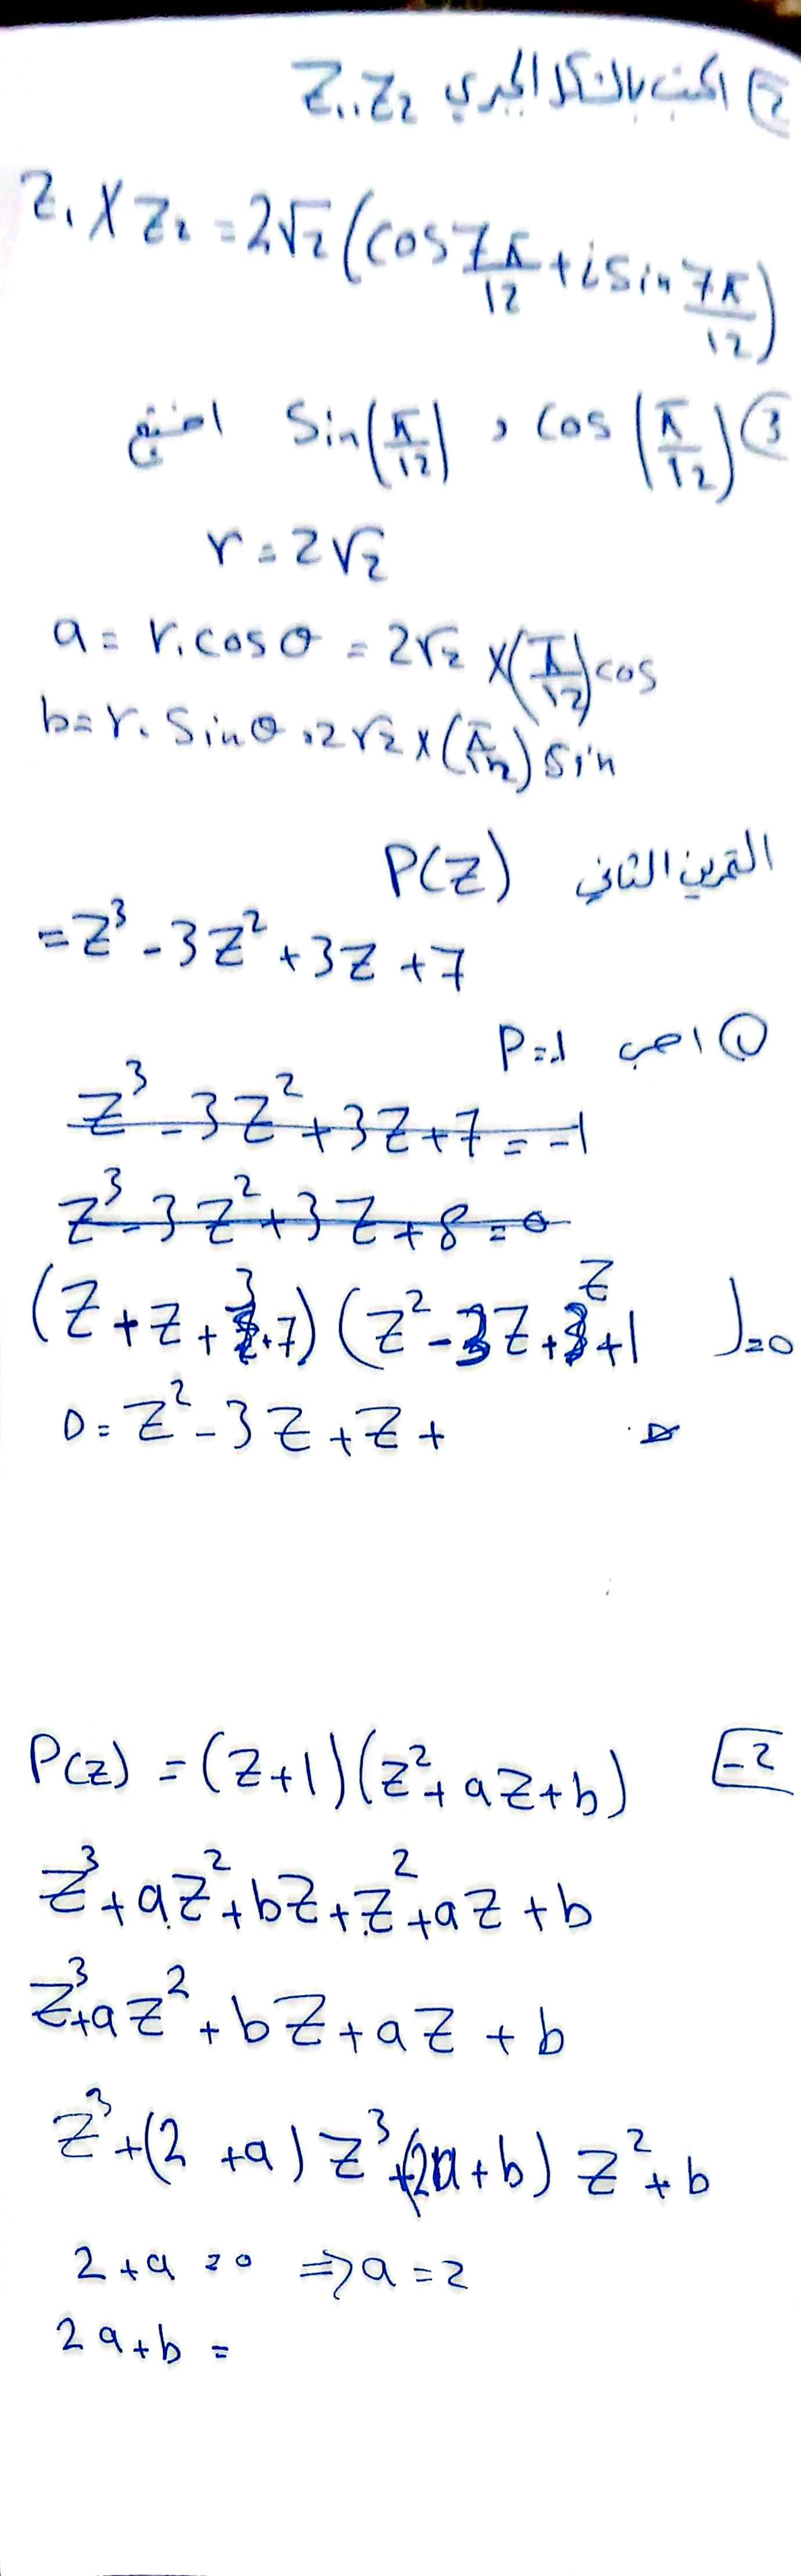 ② اكتب بالشكل الجبري Z₁.Z₂
Z₁ X Z₂ = 2√2 (cos 7π/12 + i sin 7π/12)
③ cos (π/12) و Sin(π/12) استنتج
r = 2√2
a = r.cos θ = 2√2 x(π/12) cos
b= r. Sin θ . 2√2 x (π/12) sin
التمرين الثاني P(Z)
= Z³ - 3Z² + 3Z + 7
① احسب
Z³ - 3Z² + 3Z + 7 = -1
Z³ - 3Z² + 3Z + 8 = 0
(Z + Z + 3+7) (Z² - 3Z + Z +1 )=0
0 = Z² - 3Z + Z +
P(Z) = (Z+1)(Z²+aZ+b) -2
Z³+aZ²+bZ+Z²+aZ+b
Z³+aZ²+bZ+aZ+b
Z³+(2+a)Z³+(2a+b)Z²+b
2+a=0 ⇒ a=2
2a+b =